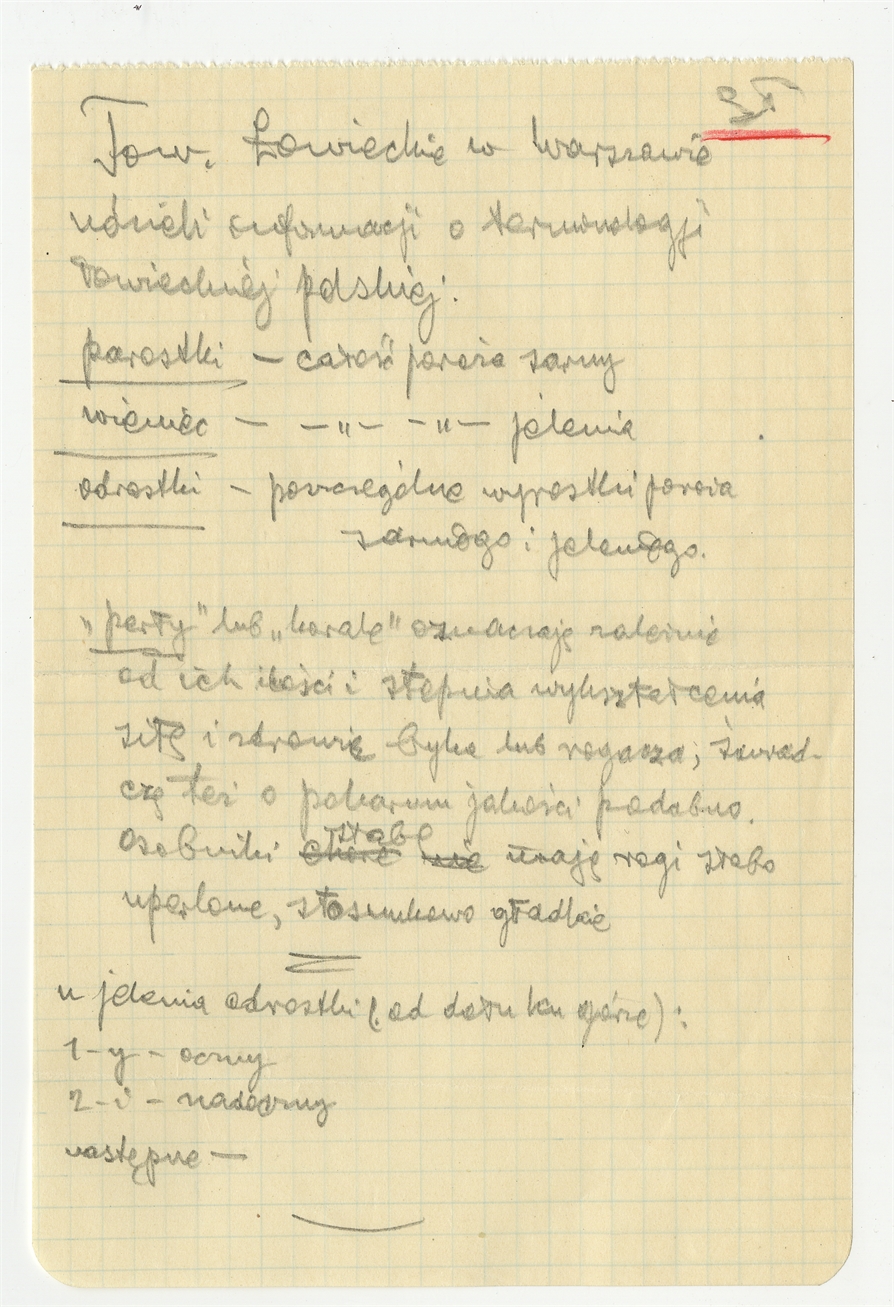 Tow. Łowieckie w Warszawie
udzieli informacji o terminologji
Łowieckiej polskiej.
parostki — całość poroża sarny
wieniec — —„— —„— jelenia
odrostki — poszczególne wyrostki poroża
sarniego i jeleniego.
„perły" lub „korale" oznaczają zależnie
od ich ilości i stopnia wykształcenia
siłę i zdrowie byka lub rogacza, świad-
czą też o pokarmu jakości podobno.
słabe
osobniki chore nie mają rogi słabo
uperlone, stosunkowo gładkie
u jelenia odrostki (od dołu ku górze):
1-y — oczny
2-i — nadoczny
następne —